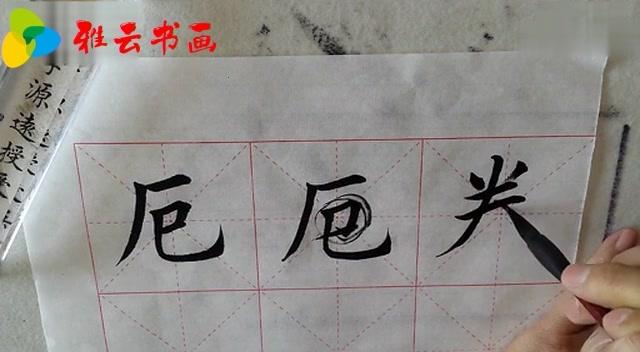 雅云书画
源遠授
厄厄龹